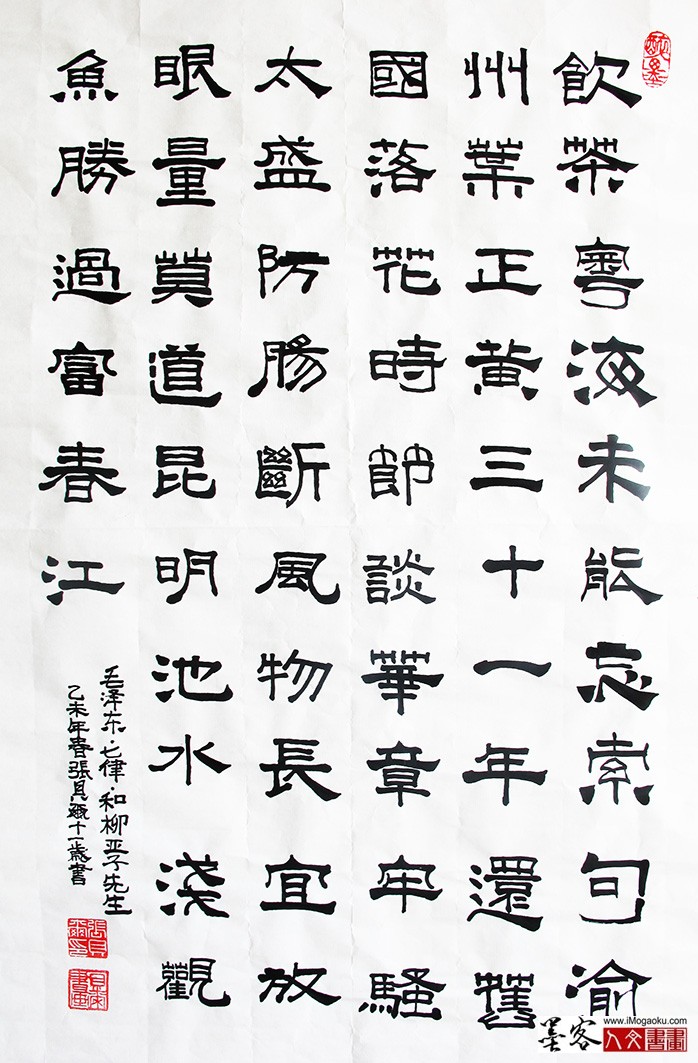 飲茶粵海未能忘索句渝
州葉正黃三十一年還舊
國落花時節談華章牢騷
太盛防腸斷風物長宜放
眼量莫道昆明池水淺觀
魚勝過富春江
毛泽东·七律·和柳亚子先生
乙未年春張貝十一歲書
墨客
www.iMogaoku.com
人文書畫